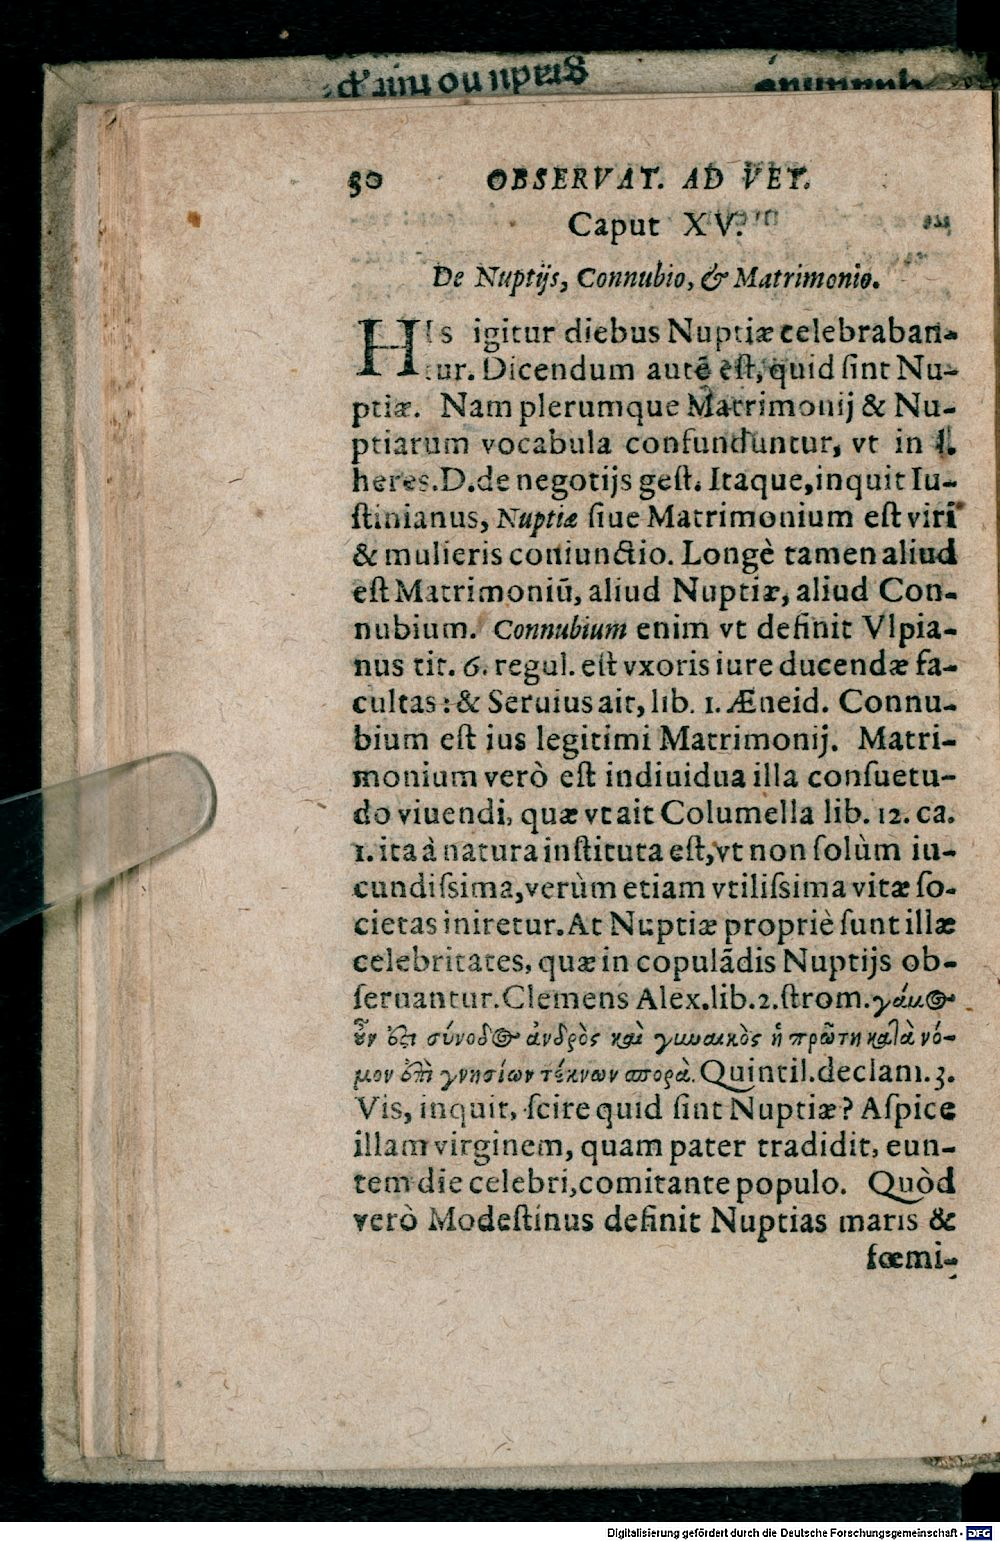 50 OBSERVAT. AD VET.
Caput XV.
De Nuptijs, Connubio, & Matrimonio.
HIs igitur diebus Nuptiæ celebraban-
tur. Dicendum autē eſt, quid ſint Nu-
ptiæ. Nam plerumque Matrimonij & Nu-
ptiarum vocabula confunduntur, vt in l.
heres. D. de negotijs geſt. Itaque, inquit Iu-
ſtinianus, Nuptiæ ſiue Matrimonium eſt viri
& mulieris coniunctio. Longè tamen aliud
eſt Matrimoniū, aliud Nuptiæ, aliud Con-
nubium. Connubium enim vt definit Vlpia-
nus tit. 6. regul. eſt vxoris iure ducendæ fa-
cultas: & Seruius ait, lib. 1. Æneid. Connu-
bium eſt ius legitimi Matrimonij. Matri-
monium verò eſt indiuidua illa conſuetu-
do viuendi, quæ vt ait Columella lib. 12. ca.
1. ita à natura inſtituta eſt, vt non ſolùm iu-
cundiſsima, verùm etiam vtiliſsima vitæ ſo-
cietas iniretur. At Nuptiæ propriè ſunt illæ
celebritates, quæ in copulādis Nuptijs ob-
ſeruantur. Clemens Alex. lib. 2. ſtrom. γάμος
οὖν ἐστι σύνοδος ἀνδρὸς καὶ γυναικὸς ἡ πρώτη κατὰ νό-
μον ἐπὶ γνησίων τέκνων σπορὰ. Quintil. declam. 3.
Vis, inquit, ſcire quid ſint Nuptiæ? Aſpice
illam virginem, quam pater tradidit, eun-
tem die celebri, comitante populo. Quòd
verò Modeſtinus definit Nuptias maris &
fœmi-
Digitalisierung gefördert durch die Deutsche Forschungsgemeinschaft - DFG